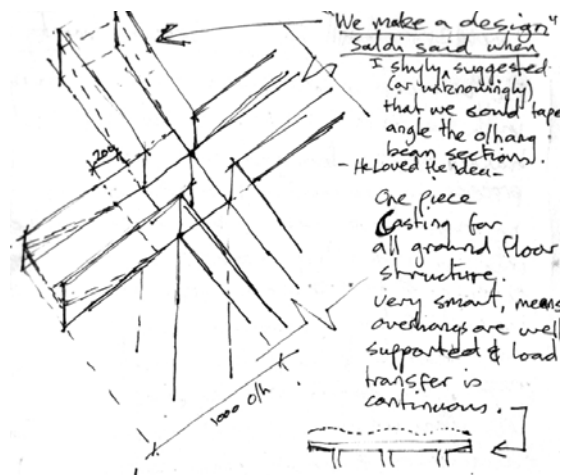 "We make a design"
Saldi said when
I shyly suggested
(or unknowingly)
that we could tape
angle the o/hang
beam sections.
- He Loved the idea -
One piece
Casting for
all ground floor
structure.
Very smart, means
overhangs are well
supported & load
transfer is
continuous.
200
1000 o/h